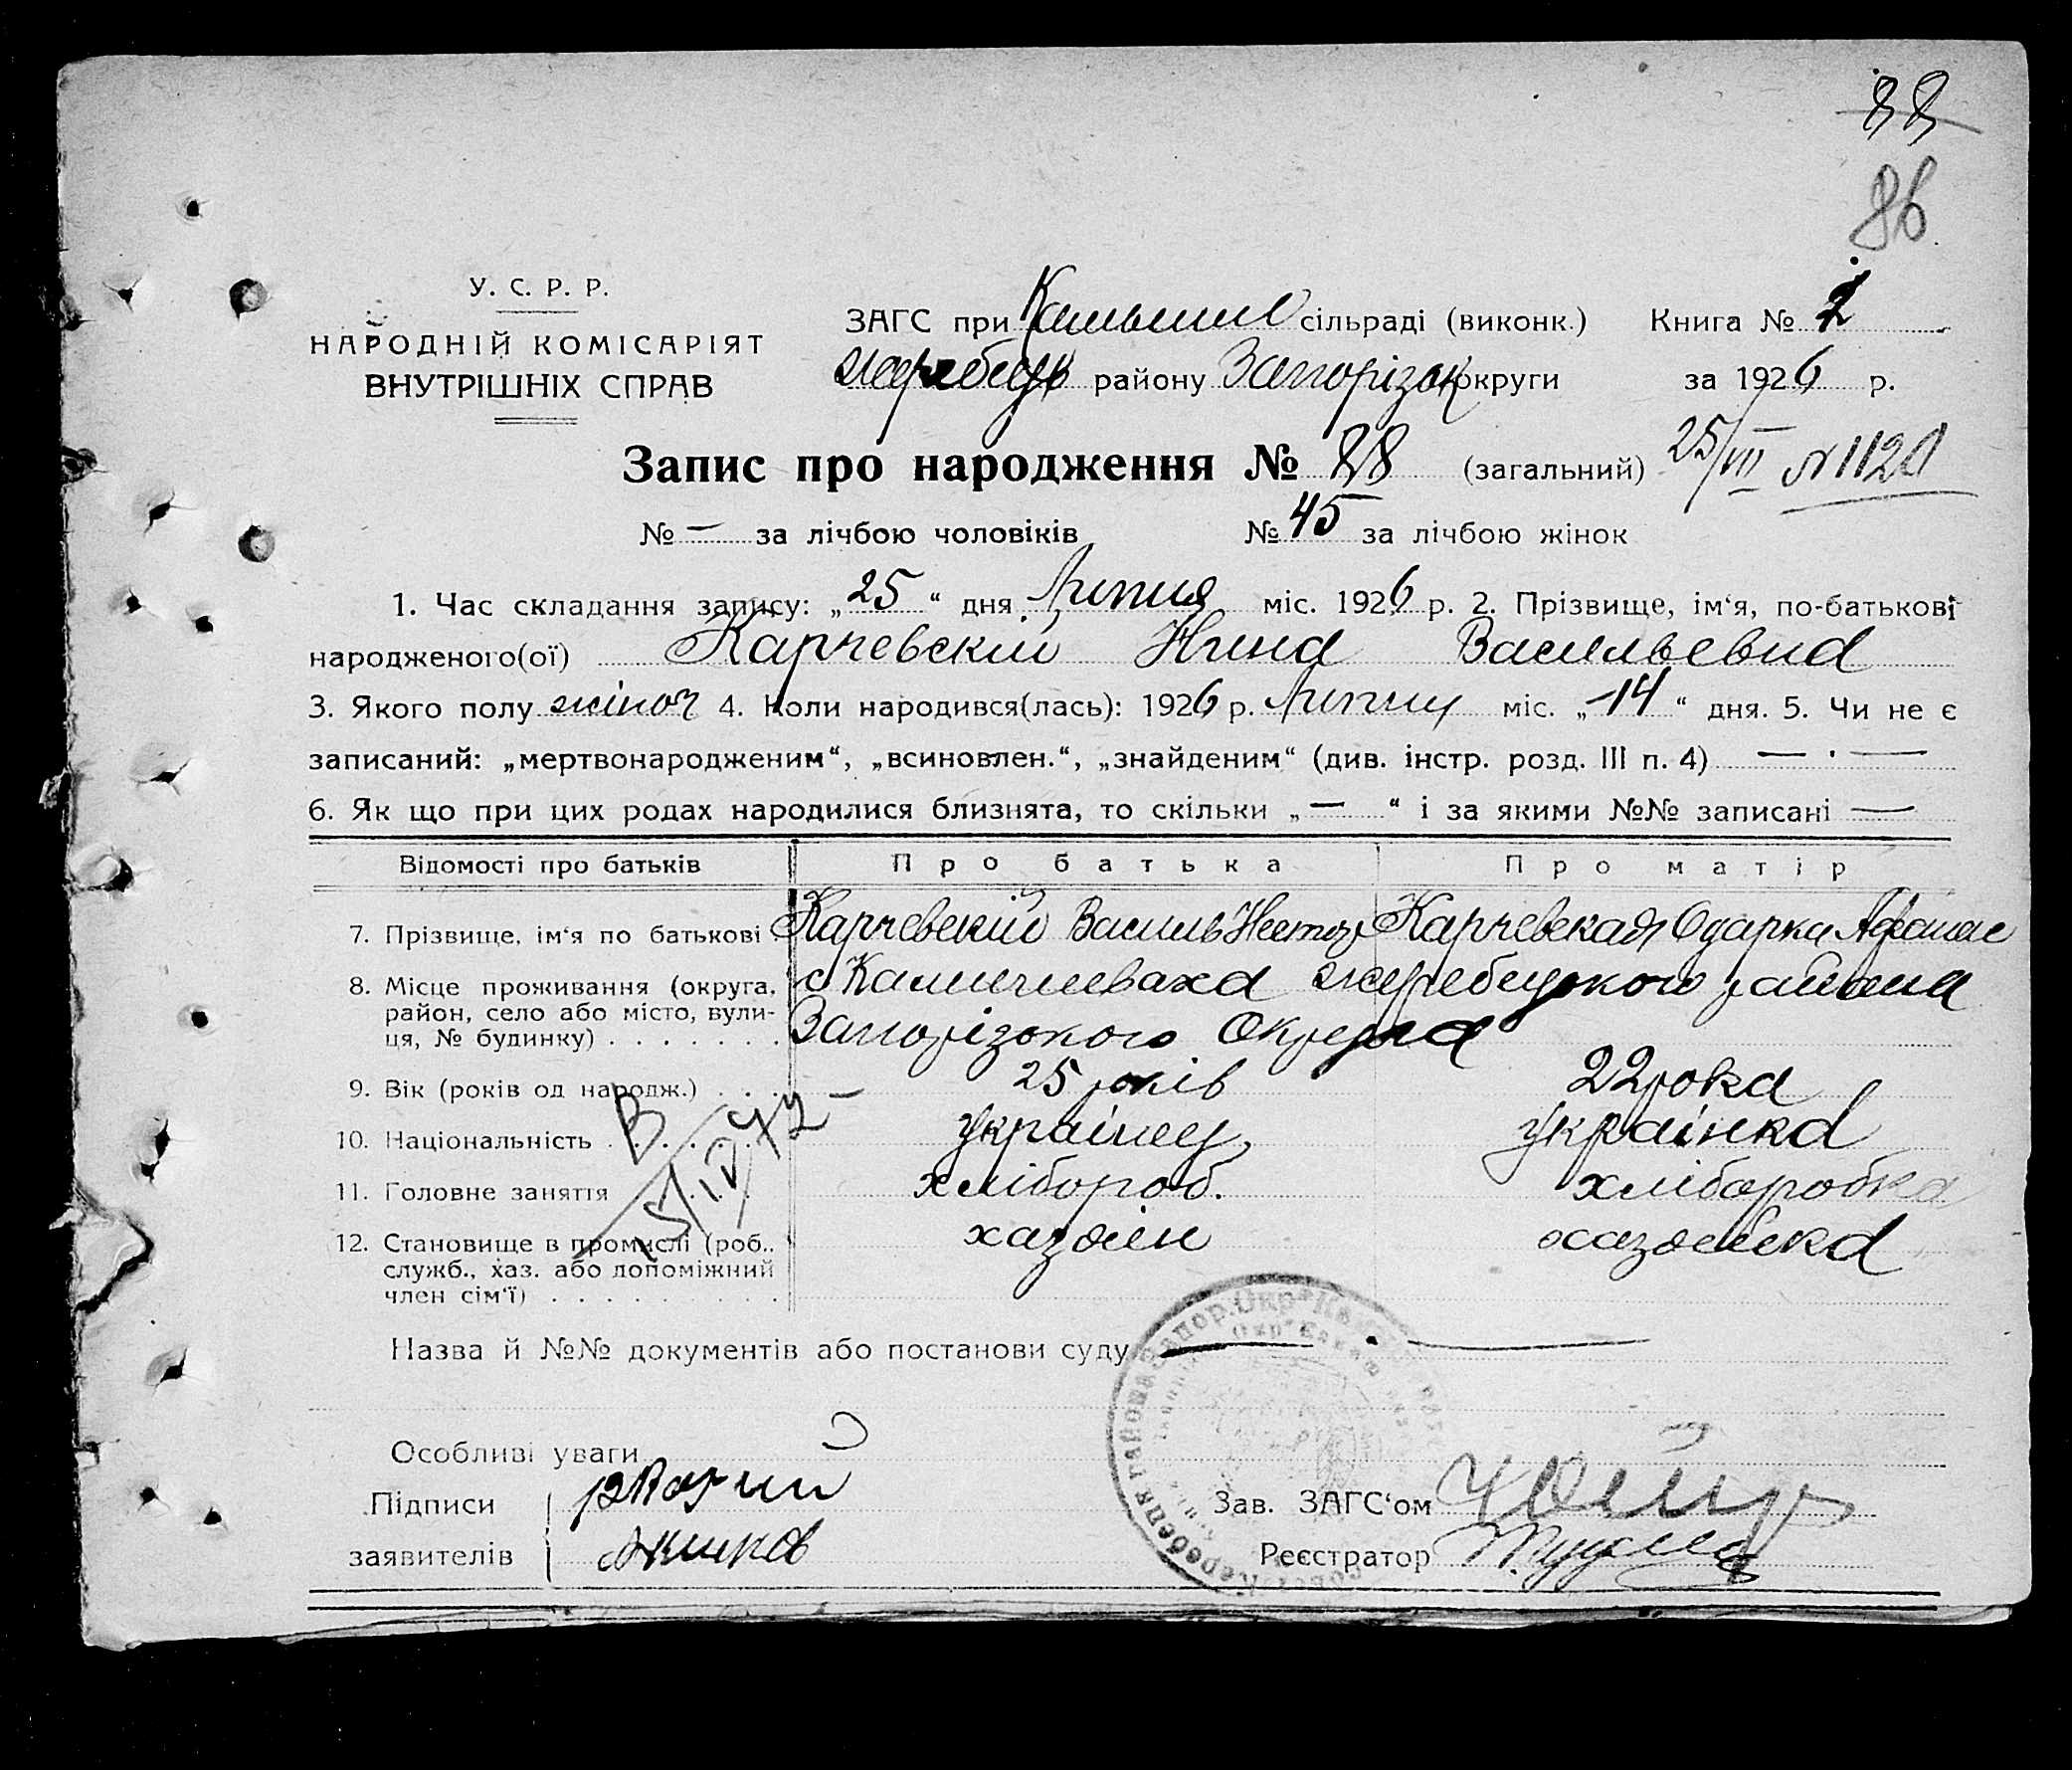 88
86
У. С. Р. Р.
НАРОДНІЙ КОМІСАРІЯТ
ВНУТРІШНІХ СПРАВ
ЗАГС при сільраді (виконк.) Книга № 2
Жеребець району Запорізьк округи за 1926 р.
Запис про народження № 88 (загальний) 25/VII N 1120
№ — за лічбою чоловіків № 45 за лічбою жінок
1. Час складання запису: „25“ дня Липня міс. 1926 р. 2. Прізвище, ім‘я, по-батькові
народженого(ої) Карчевский Нина Васильевна
3. Якого полу жіноч 4. Коли народився(лась): 1926 р. Липня міс. „14“ дня. 5. Чи не є
записаний: „мертвонародженим“, „всиновлен.“, „знайденим“ (див. інстр. розд. III п. 4) — · —
6. Як що при цих родах народилися близнята, то скільки „—“ і за якими №№ записані —
Відомості про батьків Про батька Про матір
7. Прізвище, ім‘я по батькові Карчевский Василь Нестор Карчевская Одарка Афанас
8. Місце проживання (округа, с Камишеваха Жеребецького района
район, село або місто, вули-
ця, № будинку) . . . . . . . Запорізького Округа
9. Вік (років од народж.) . . . 25 років 22 рока
10. Національність . . . . . українец українка
11. Головне заняття . . . хлібороб. хліборобка
12. Становище в промислі (роб., хазяїн хазяйка
служб., хаз. або допоміжний
член сім‘ї) . . . . . . . . .
Назва й №№ документів або постанови суду — · —
Особливі уваги
Підписи
заявителів
Зав. ЗАГС‘ом
Реєстратор